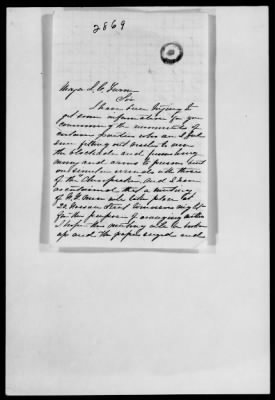 2869
Major L. C. Turner
Sir
I have been trying to
get some information for you
concerning the movements of
certain parties who are I
fitting out vessels to run
the blockade and furnishing
money and arms to
out on errands with those
of the Chesapeake, and I have
ascertained that a meeting
of men will take place at
22 Street tomorrow night
for the purpose of arranging
I hope this meeting will be broken
up and the papers seized and